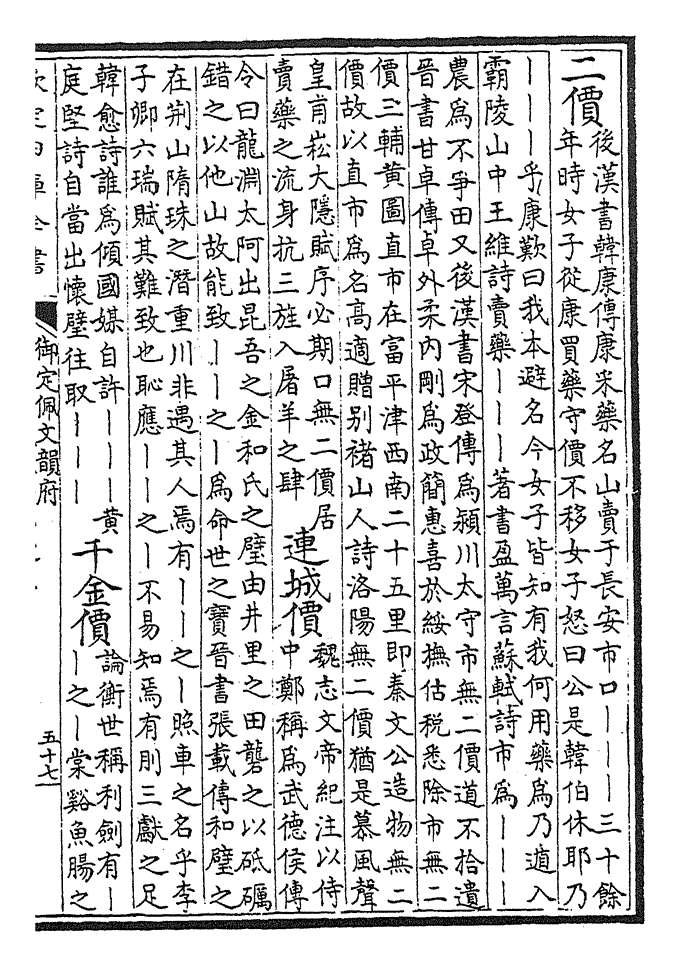 二價
後漢書韓康傳康采藥名山賣于長安市口｜｜｜三十餘
年時女子從康買藥守價不移女子怒曰公是韓伯休耶乃
｜｜｜乎康歎曰我本避名今女子皆知有我何用藥為乃遁入
霸陵山中王維詩賣藥｜｜｜著書盈萬言蘇軾詩市為｜｜｜
農為不爭田又後漢書宋登傳為潁川太守市無二價道不拾遺
晉書甘卓傳卓外柔内剛為政簡惠善於綏撫估税悉除市無二
價三輔黄圖直市在富平津西南二十五里即秦文公造物無二
價故以直市為名高適贈别禇山人詩洛陽無二價猶是慕風聲
皇甫崧大隱賦序必期口無二價居
賣藥之流身抗三旌入屠羊之肆
連城價
魏志文帝紀注以侍
中鄭稱為武德侯傅
令曰龍淵太阿出昆吾之金和氏之璧由井里之田礲之以砥礪
錯之以他山故能致｜｜之｜為命世之寶晉書張載傳和璧之
在荆山隋珠之潜重川非遇其人焉有｜｜之｜照車之名乎李
子卿六瑞賦其難致也恥應｜｜之｜不易知焉有刖三獻之足
韓愈詩誰為傾國媒自許｜｜｜黄
庭堅詩自當出懷璧往取｜｜｜
千金價
論衡世稱利劍有｜
｜之｜棠谿魚腸之
欽定四庫全書
御定佩文韻府
五十七